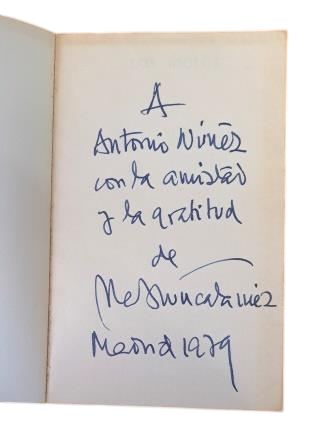 A
Antonio Núñez
con la amistad
y la gratitud
de
Madrid 1979